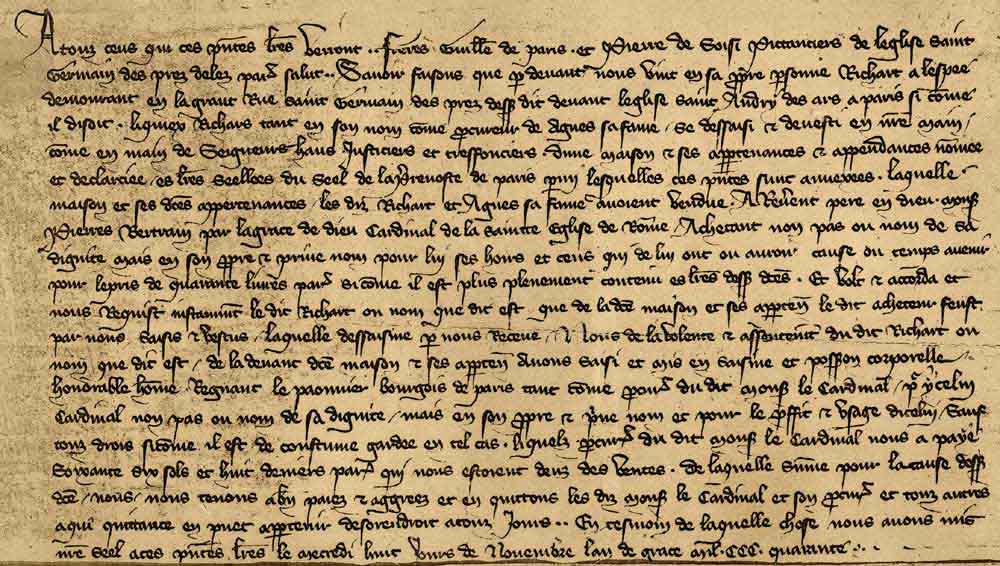 A touz ceus qui ces pñtes lres verront .. freres Guille de paris . et Pierre de Soisi Pittanciers de leglise saint
Germain des prez delez par̃ salut .. Savoir faisons que p devant nous vint en sa ppre psonne Richart a lespee
demourant en la grant Rue saint Germain des prez dess dit devant leglise saint Andry des ars a paris si come
il disoit . liquex Richars tant en son nom come pcureur de Agnes sa fame , se dessaisi & devesti en nre main ,
come en main de Seigneurs haus Justiciers et tressonciers . dune maison & ses apptenances & appendances nomee
et declarciee , es lres seellees du seel de la pvoste de paris pmi lesquelles ces pñtes sunt annexees . laquelle
maison et ses dces appertenances , les diz Richart et Agnes sa fame avoient vendue . A Revent pere en dieu . mons
Pierres Bertram par la grace de dieu Cardinal de la saincte Eglise de Rome , Achetant non pas ou nom de sa
dignite mais en son ppre & prive nom pour lui ses hoirs et ceus qui de lui ont ou auront cause ou temps avenir
pour le pris de quarante livres par̃ si come il est plus plenement contenu es lres dess dces . Et volt & acorda et
nous Requist instamint le dit Richart ou nom que dit est que de la dce maison et ses appten le dit acheteur feust
par nous saisis & vestus , laquelle dessaisine p nous Receue , Nous de la volente & assentemt du dit Richart ou
nom que dit est , de la devant dce maison & ses apptẽn Avons saisi et mis en saisine et possion corporelle
honorable home . Regnaut le paonnier bourgois de paris tant come pcur̃ du dit mons le Cardinal , p ycelui
Cardinal non pas ou nom de sa dignite , mais en son ppre & pve nom et pour le pffit & usage dicelui , Sauf
touz drois si come il est de coustume garder en tel cas . liquels pcur̃ du dit mons le Cardinal nous a paye
Soixante six sols et huit deniers par̃ qui nous estoient deuz des ventes . de laquelle sume pour la cause dess
dce , nous , nous tenons a bñ paiez & aggreez et en quittons les diz mons le Cardinal et son pcur̃ et touz autres
a qui quittance en puet apptenir desorendroit a touz jours .. En tesmoin de laquelle chose nous avons mis
nre seel a ces pñtes lres le mercredi huit jours de Novembre lan de grace mil . CCC . quarante ..